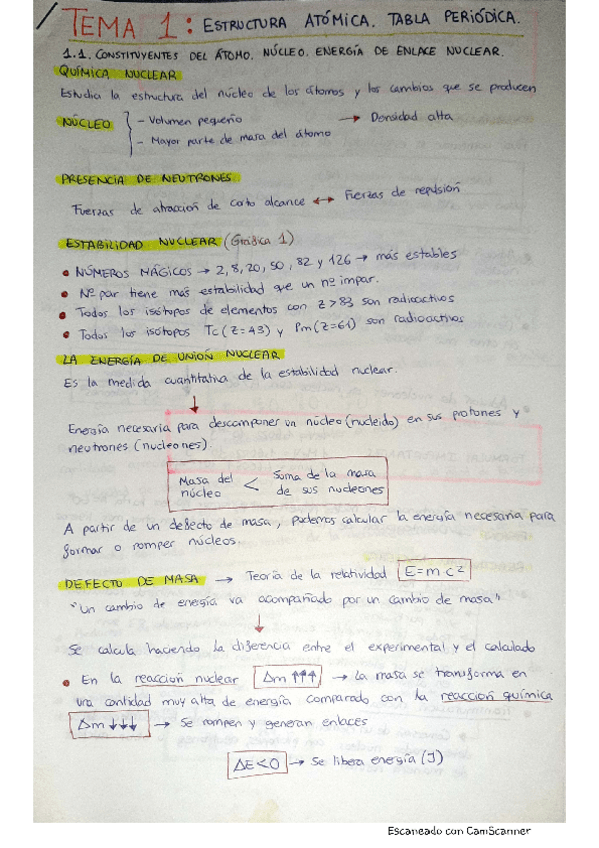 TEMA 1: ESTRUCTURA ATÓMICA. TABLA PERIÓDICA.
1.1. CONSTITUYENTES DEL ÁTOMO. NÚCLEO. ENERGÍA DE ENLACE NUCLEAR.
QUÍMICA NUCLEAR
Estudia la estructura del núcleo de los átomos y los cambios que se producen
NÚCLEO { - Volumen pequeño → Densidad alta
- Mayor parte de masa del átomo
PRESENCIA DE NEUTRONES
Fuerzas de atracción de corto alcance ↔ Fuerzas de repulsión
ESTABILIDAD NUCLEAR (Gráfica 1)
• NÚMEROS MÁGICOS → 2, 8, 20, 50, 82 y 126 → más estables
• Nº par tiene más estabilidad que un nº impar.
• Todos los isótopos de elementos con Z>83 son radioactivos
• Todos los isótopos Tc (Z=43) y Pm (Z=61) son radioactivos
LA ENERGÍA DE UNIÓN NUCLEAR
Es la medida cuantitativa de la estabilidad nuclear.
↓
Energía necesaria para descomponer un núcleo (nucleido) en sus protones y
neutrones (nucleones).
Masa del núcleo < Suma de la masa de sus nucleones
A partir de un defecto de masa, podemos calcular la energía necesaria para
formar o romper núcleos.
DEFECTO DE MASA → Teoría de la relatividad E=m·c²
"Un cambio de energía va acompañado por un cambio de masa"
↓
Se calcula haciendo la diferencia entre el experimental y el calculado
• En la reacción nuclear Δm ↑↑↑ → La masa se transforma en
una cantidad muy alta de energía comparado con la reacción química
Δm ↓↓↓ → Se rompen y generan enlaces
ΔE<0 → Se libera energía (J)
Escaneado con CamScanner